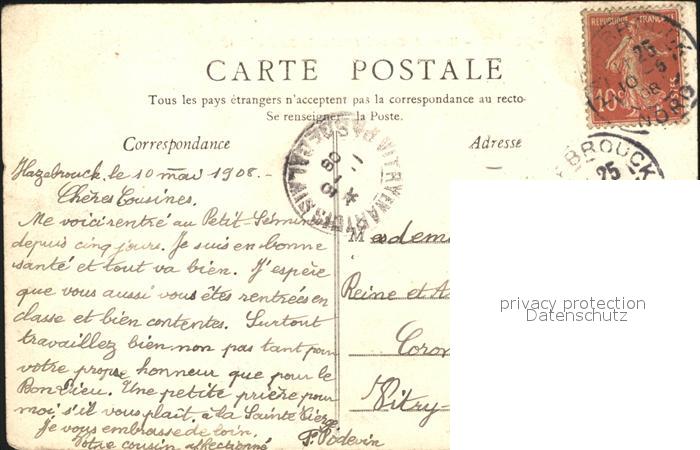 CARTE POSTALE
Tous les pays étrangers n'acceptent pas la correspondance au recto-
Se renseigner à la Poste.
Correspondance
Adresse
REPUBLIQUE FRANÇAISE
10c
25
10-5
08
NORD
HAZEBROUCK
25
VITRY EN ARTOIS
PAS DE CALAIS
Hazebrouck, le 10 mai 1908.-
Chères Cousines.
Me voici rentré au Petit-Séminaire
depuis cinq jours. Je suis en bonne
santé et tout va bien. J'espère
que vous aussi vous êtes rentrées en
classe et bien contentes. Surtout
travaillez bien non pas tant pour
votre propre honneur que pour le
Bon Dieu. Une petite prière pour
moi s'il vous plaît, à la Sainte Vierge
Je vous embrasse de loin.
Votre cousin affectionné
F. Podevin
Madem
Reine et A
Coron
Vitry-
privacy protection
Datenschutz